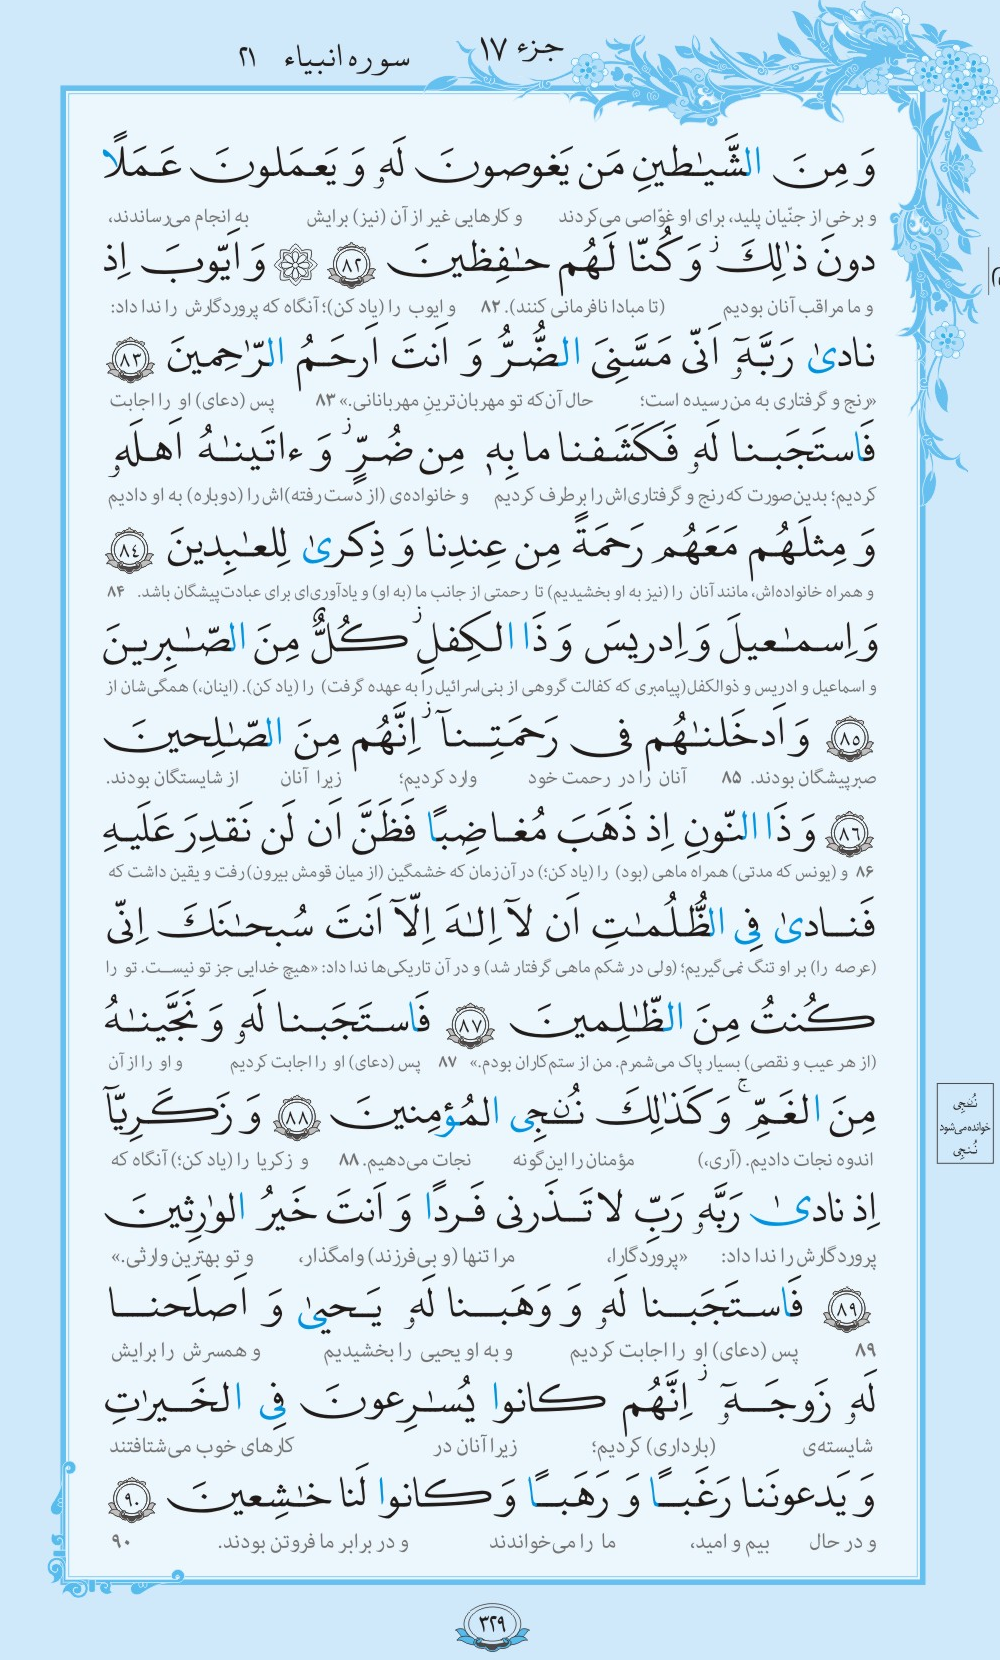 جزء ۱۷
سوره انبیاء ۲۱
وَ مِنَ الشَّیـٰطینِ مَن یَغوصونَ لَهٗ وَ یَعمَلونَ عَمَلًا
و برخی از جنّیان پلید، برای او غوّاصی می‌کردند و کارهایی غیر از آن (نیز) برایش به انجام می‌رساندند،
دونَ ذٰلِكَ ۖ وَ کُنّا لَهُم حـٰفِظینَ ﴿٨٢﴾ ۞ وَ اَیّوبَ اِذ
و ما مراقب آنان بودیم (تا مبادا نافرمانی کنند). ۸۲ و ایوب را (یاد کن)؛ آنگاه که پروردگارش را ندا داد:
نادیٰ رَبَّهٗٓ اَنّی مَسَّنِیَ الضُّرُّ وَ اَنتَ اَرحَمُ الرّٰحِمینَ ﴿٨٣﴾
«رنج و گرفتاری به من رسیده است؛ حال آن‌که تو مهربان‌ترینِ مهربانانی.» ۸۳ پس (دعای) او را اجابت
فَاستَجَبنا لَهٗ فَکَشَفنا ما بِهٖ مِن ضُرٍّ ز وَ ءاتَینـٰهُ اَهلَهٗ
کردیم؛ بدین‌صورت که رنج و گرفتاری‌اش را برطرف کردیم و خانواده‌ی (از دست رفته)‌اش را (دوباره) به او دادیم
وَ مِثلَهُم مَعَهُم رَحمَةً مِن عِندِنا وَ ذِکریٰ لِلعـٰبِدینَ ﴿٨٤﴾
و همراه خانواده‌اش، مانند آنان را (نیز به او بخشیدیم) تا رحمتی از جانب ما (به او) و یادآوری‌ای برای عبادت‌پیشگان باشد. ۸۴
وَ اِسمـٰعیلَ وَ اِدریسَ وَ ذَا الکِفلِ ز کُلٌّ مِنَ الصّـٰبِرینَ
و اسماعیل و ادریس و ذوالکفل (پیامبری که کفالت گروهی از بنی‌اسرائیل را به عهده گرفت) را (یاد کن). (اینان،) همگی‌شان از
﴿٨٥﴾ وَ اَدخَلنـٰهُم فی رَحمَتِنآ ز اِنَّهُم مِنَ الصّـٰلِحینَ
صبرپیشگان بودند. ۸۵ آنان را در رحمت خود وارد کردیم؛ زیرا آنان از شایستگان بودند.
﴿٨٦﴾ وَ ذَا النّونِ اِذ ذَهَبَ مُغاضِبًا فَظَنَّ اَن لَن نَقدِرَ عَلَیهِ
۸۶ و (یونس که مدتی) همراه ماهی (بود) را (یاد کن؛) در آن زمان که خشمگین (از میان قومش بیرون) رفت و یقین داشت که
فَنادیٰ فِی الظُّلُمـٰتِ اَن لآ اِلـٰهَ اِلّآ اَنتَ سُبحـٰنَكَ اِنّی
(عرصه را) بر او تنگ نمی‌گیریم؛ (ولی در شکم ماهی گرفتار شد) و در آن تاریکی‌ها ندا داد: «هیچ خدایی جز تو نیست. تو را
کُنتُ مِنَ الظّـٰلِمینَ ﴿٨٧﴾ فَاستَجَبنا لَهٗ وَ نَجَّینـٰهُ
(از هر عیب و نقصی) بسیار پاک می‌شمرم. من از ستم‌کاران بودم.» ۸۷ پس (دعای) او را اجابت کردیم و او را از آن
مِنَ الغَمِّ ۚ وَ کَذٰلِكَ نُـۨجِی المُؤمِنینَ ﴿٨٨﴾ وَ زَکَرِیّآ
اندوه نجات دادیم. (آری،) مؤمنان را این‌گونه نجات می‌دهیم. ۸۸ و زکریا را (یاد کن؛) آنگاه که
اِذ نادیٰ رَبَّهٗ رَبِّ لا تَذَرنی فَردًا وَ اَنتَ خَیرُ الوٰرِثینَ
پروردگارش را ندا داد: «پروردگارا، مرا تنها (و بی‌فرزند) وامگذار، و تو بهترین وارثی.»
﴿٨٩﴾ فَاستَجَبنا لَهٗ وَ وَهَبنا لَهٗ یَحییٰ وَ اَصلَحنا
۸۹ پس (دعای) او را اجابت کردیم و به او یحیی را بخشیدیم و همسرش را برایش
لَهٗ زَوجَهٗٓ ز اِنَّهُم کانوا یُسـٰرِعونَ فِی الخَیرٰتِ
شایسته‌ی (بارداری) کردیم؛ زیرا آنان در کارهای خوب می‌شتافتند
وَ یَدعونَنا رَغَبًا وَ رَهَبًا وَ کانوا لَنا خـٰشِعینَ ﴿٩٠﴾
و در حال بیم و امید، ما را می‌خواندند و در برابر ما فروتن بودند. ۹۰
نُـۨجِی
خوانده می‌شود
نُنجِی
۳۲۹